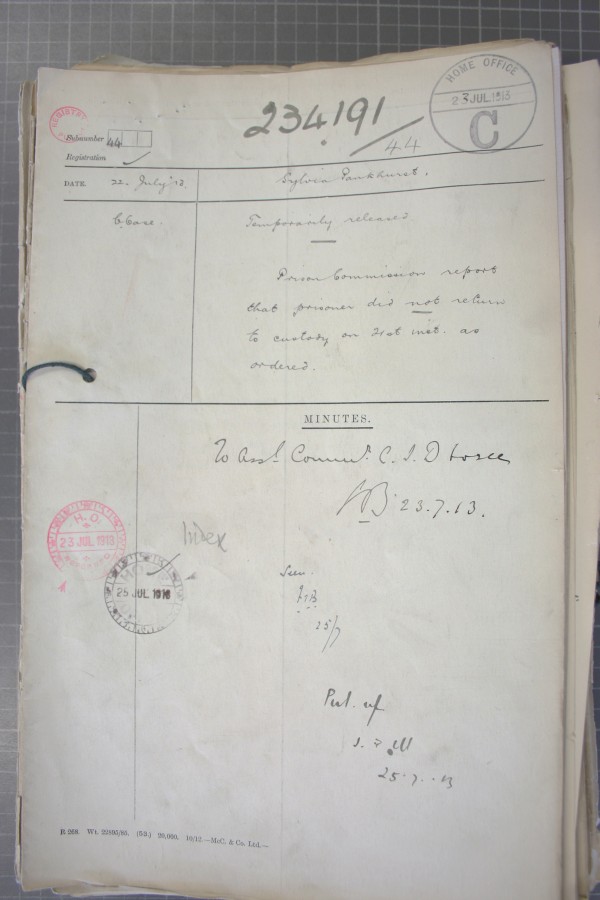 HOME OFFICE
23 JUL. 1913
C
234191
/44
REGISTRY
Subnumber 44
Registration
DATE. 22 July '13
Sylvia Pankhurst.
C. Case.
Temporarily released
Prison Commission report
that prisoner did not return
to custody on 21st inst. as
ordered.
MINUTES.
To Asst. Commr. C. I. D to see
23.7.13.
H.O.
23 JUL. 1913
Index
H.O.
25 JUL. 1913
Seen.
25/7
Put up
25.7.13
R 268. Wt. 22893/80. 20,000. 10/12.—McC. & Co. Ltd.—